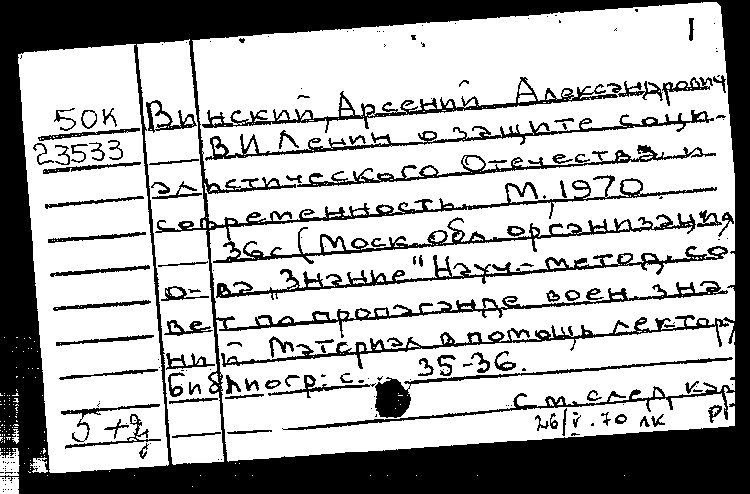 1
50К Винский, Арсений Александрович
23533 В.И. Ленин о защите соци-
алистического Отечества и
современность. М., 1970
36с (Моск. обл. организация
о-ва „Знание" Науч.-метод. со-
вет по пропаганде воен. зна-
ний. Материал в помощь лектору
Библиогр: с. 35-36.
См. след. кар
5+2
26/V.70 лк